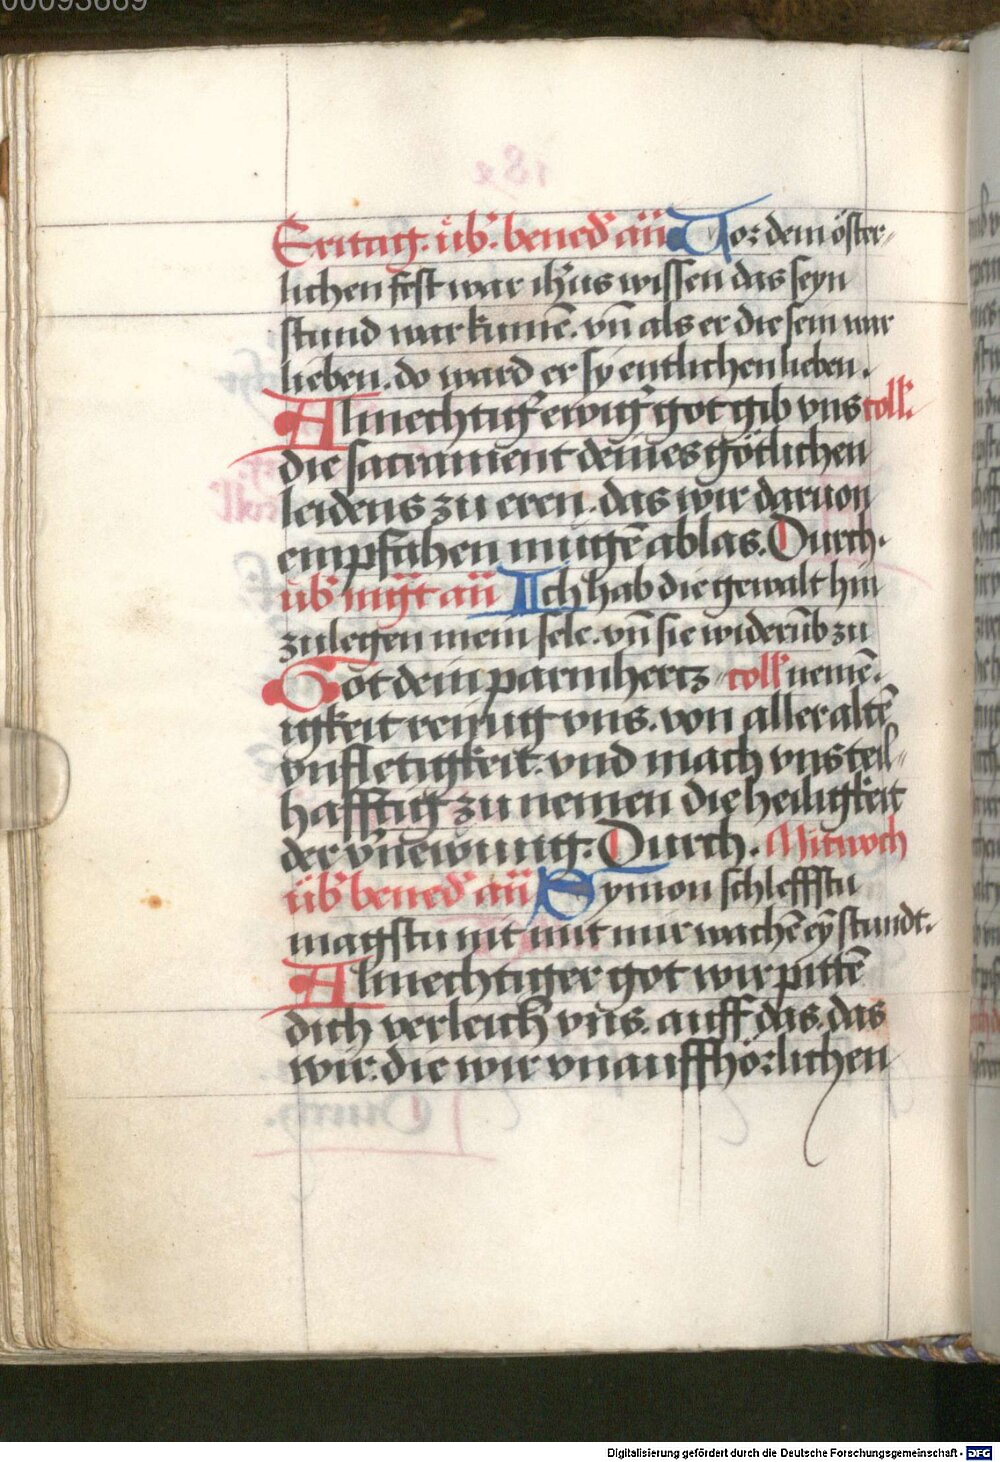 00093669
Eritag. üb᷑. bened᷑ añ Vor dem öster-
lichen fest war ih̄us wissen das seyn
stund war kumē. vn̄ als er die sein war
lieben. do ward er sy entlichen lieben.
Almechtig᷑ ewig᷑ got gib vns coll᷑.
die sacrament deines götlichen
leidens zu eren. das wir daruon
empfahen mügē ablas. Durch.
üb᷑ mg̅t añ Ich hab die gewalt hin
zulegen mein sele. vn̄ sie widerūb zu
Got dein parmhertz- coll᷑ nemē.
igkeit reinig vns. von aller altē
vnfletigkeit. vnd mach vns teil-
hafftig zu nemen die heiligkeit
der v᷑newung. Durch. Mitwoch
üb᷑ bened᷑ añ Symon schleffstu
magstu nit mit mir wachē ey̅ stundt.
Almechtiger got wir pittē
dich verleich vns. auff das. das
wir. die wir vnauffhörlichen
Digitalisierung gefördert durch die Deutsche Forschungsgemeinschaft - DFG